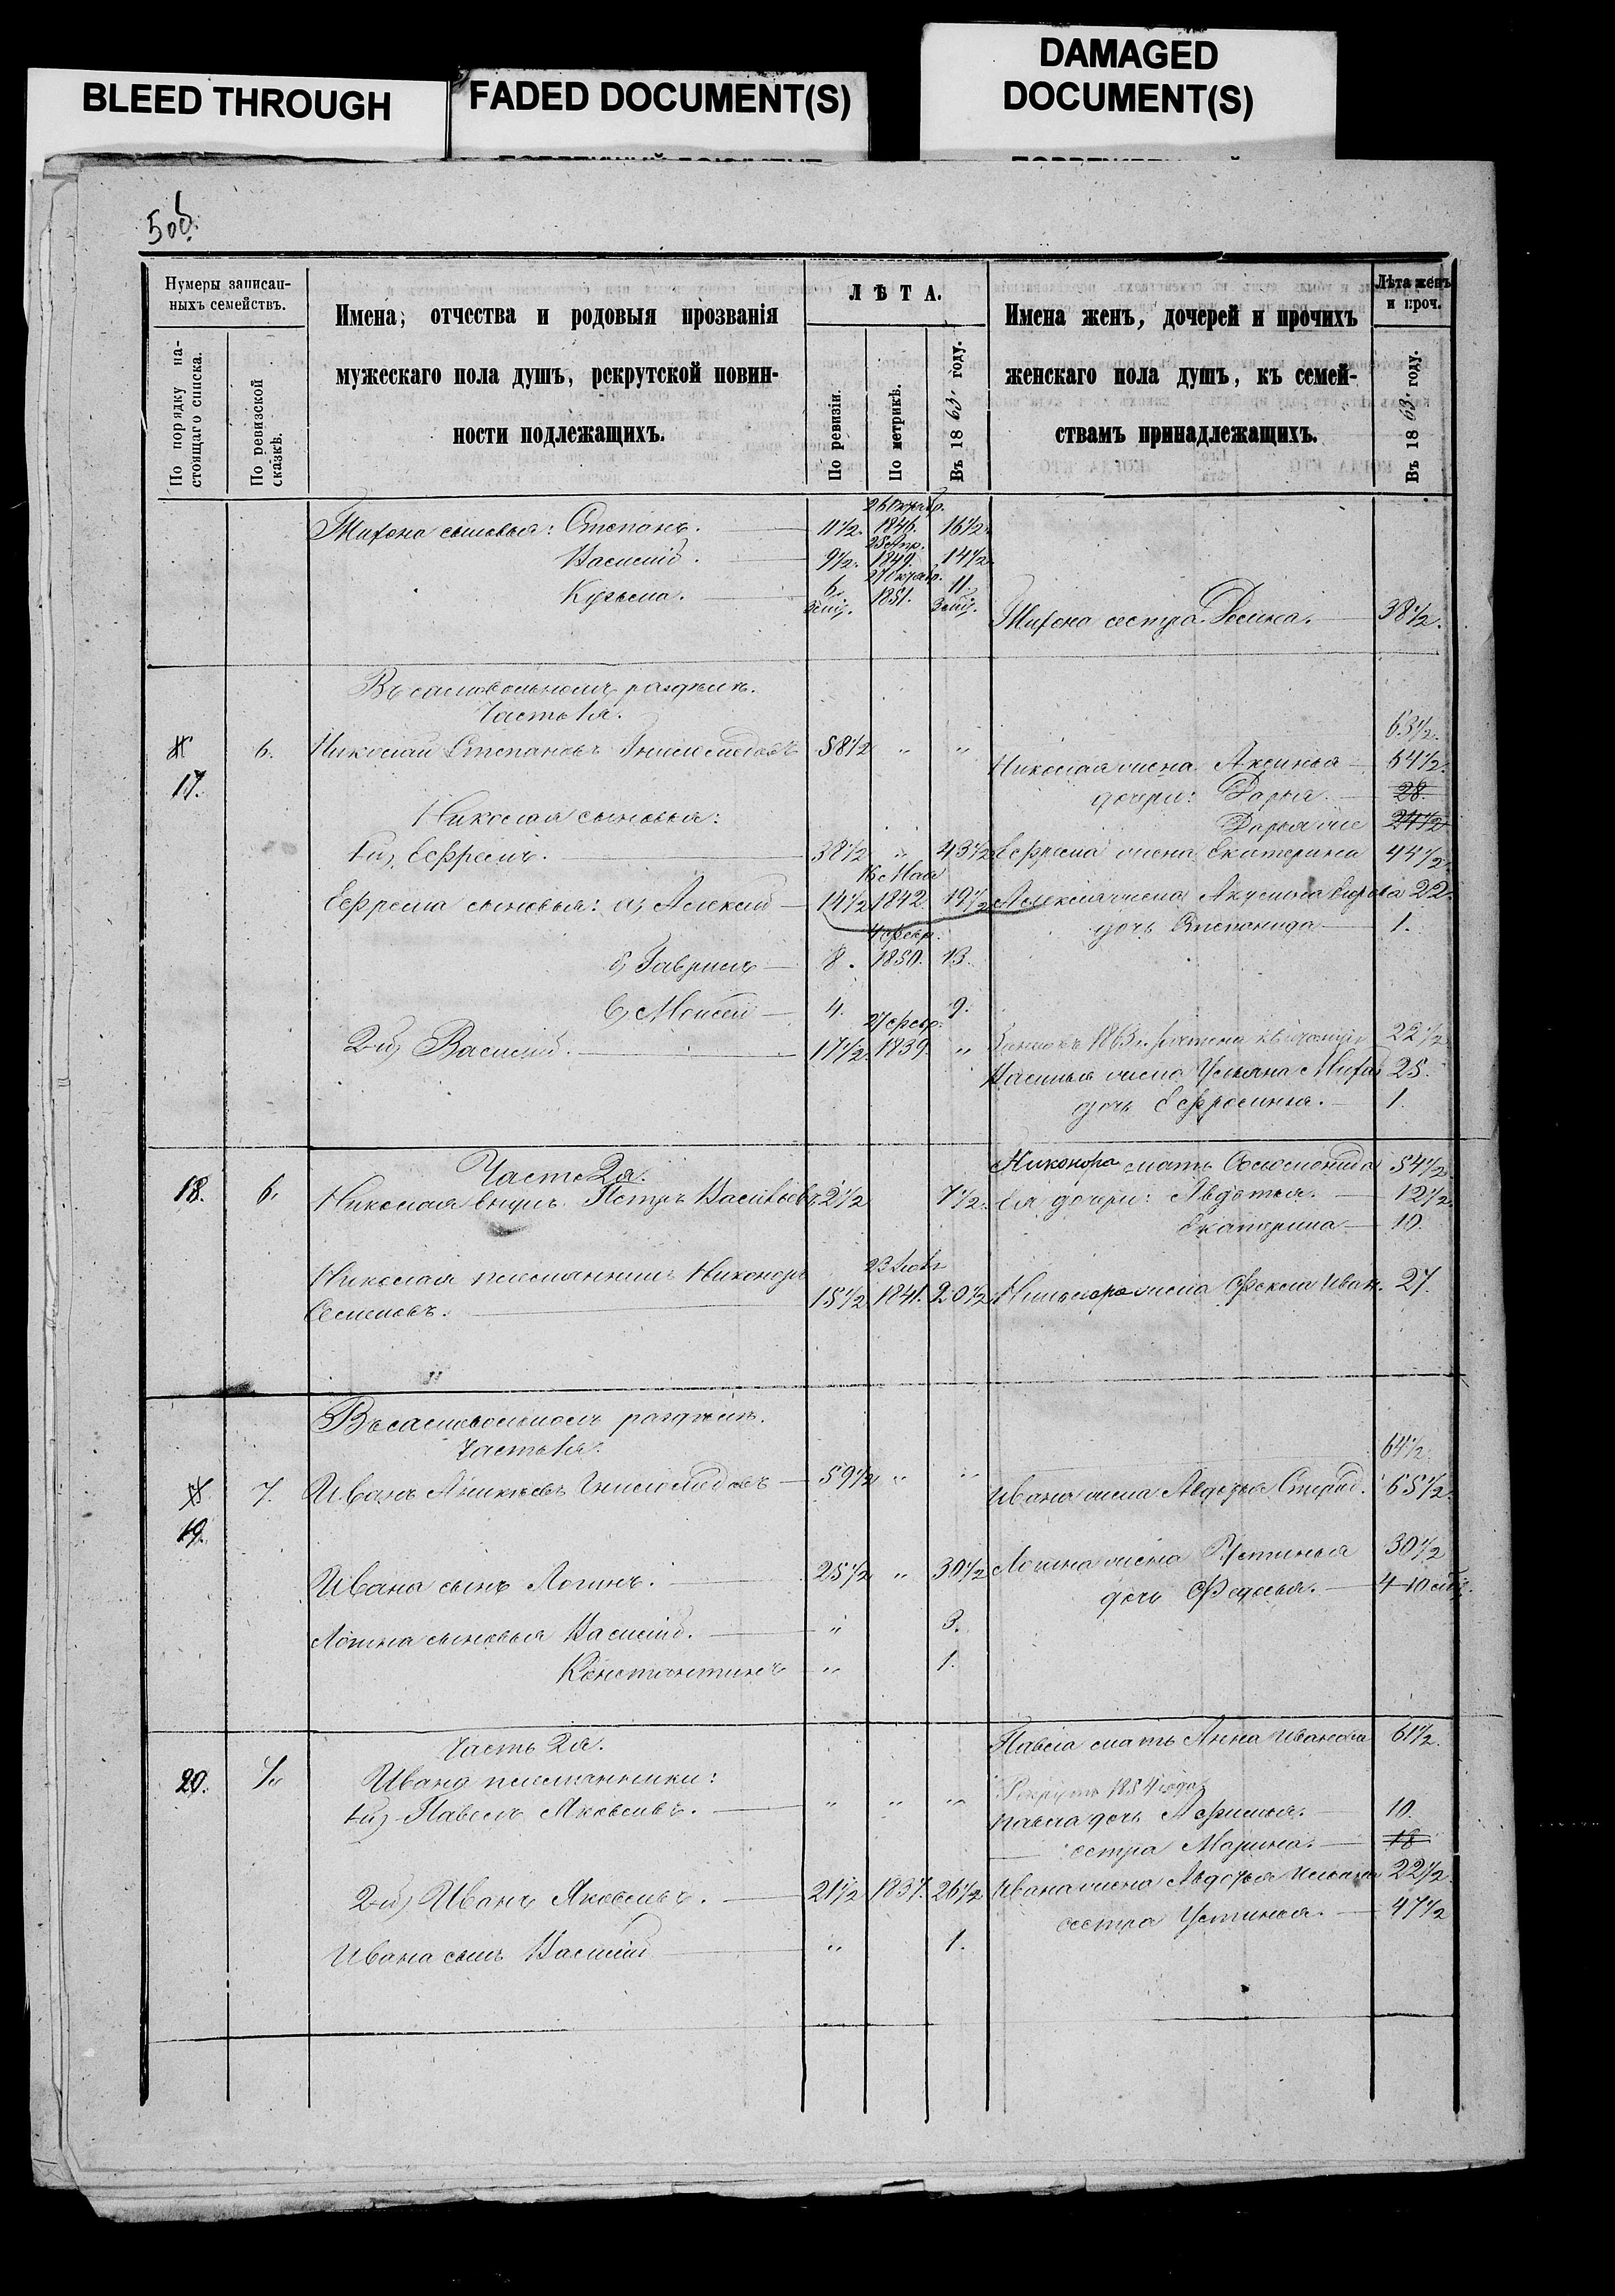 BLEED THROUGH
FADED DOCUMENT(S)
DAMAGED
DOCUMENT(S)
5 об.
Нумеры записан-
ныхъ семействъ.
По порядку на-
стоящаго списка.
По ревизской
сказкѣ.
Имена, отчества и родовыя прозванія
мужескаго пола душъ, рекрутской повин-
ности подлежащихъ.
ЛѢТА.
По ревизіи.
По метрикѣ.
Въ 1863 году.
Имена женъ, дочерей и прочихъ
женскаго пола душъ, къ семей-
ствамъ принадлежащихъ.
Лѣта женъ
и проч.
Въ 1863 году.
Тихона сыновья: Степанъ. 11½. 26 Октяб. 1846. 16½.
Василій. 9½. 25 Апр. 1849. 14½.
Кузьма. 6. 27 Октяб. 1851. 11.
Тихона сестра 38½.
Въ самовольномъ раздѣлѣ.
Часть 1я.
63½.
17. 6. Николай Степановъ 58½ " "
Николая жена Аксинья 64½.
дочери: Дарья. 28.
Николая сыновья:
Дарья же 24½
1й, Ефремъ. 38½ " 43½ Ефрема жена Екатерина 45½.
Ефрема сыновья: а, Алексѣй 14½ 16 Мая 1842. 19½ Алексѣя жена Акулина 22.
дочь Степанида 1.
б, Гаврилъ 8. 4 Февр. 1850. 13.
в, Моисей 4. 9.
2й, Василій. 17½. 27 Февр. 1839. " 1863 22½
Василья жена Ульяна 25.
дочь Ефросинья. 1.
Часть 2я.
Никонора мать Соломонида 54½.
18. 6. Николая внукъ Петръ Васильевъ 2½ 7½. Ея дочери: Авдотья. 12½.
Екатерина 10.
Николая племянникъ Никоноръ
Семеновъ. 15½. 23 1841. 20½ Никонора жена Фекла Иван. 27.
Въ самовольномъ раздѣлѣ.
Часть 1я.
64½.
7. Иванъ 59½ " "
Ивана жена Авдотья 65½.
19.
Ивана сынъ Логинъ. 25½ " 30½ Логина жена Устинья 30½
дочь Федосья. 4
Логина сыновья Василій. " 3.
Константинъ " 1.
Часть 2я.
Павла мать Анна Иванова 61½.
20. 7. Ивана племянники:
Рекрутъ 1854 года
1й, Павелъ Яковлевъ. " " "
Павла дочь Афимья. 10.
сестра Марина. 18
2й, Иванъ Яковлевъ. 21½ 1837. 26½ Ивана жена Авдотья 22½.
сестра Устинья. 47½
Ивана сынъ Василій " 1.